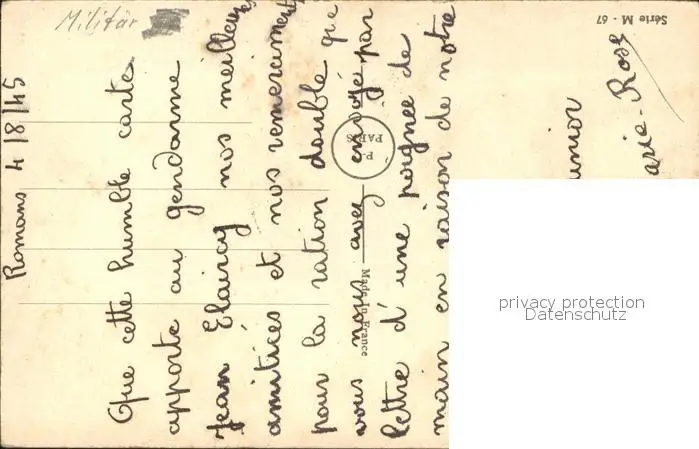 Militär
Romans 4/8/45
Que cette humble carte
apporte au gendarme
Jean Clairay nos meilleures
amitiées et nos remerciements
pour la ration double que
vous nous avez envoyé par
lettre d'une poignée de
main en raison de notre
unior
arie-Rose
Série M - 67
P-C
PARIS
Made in France
privacy protection
Datenschutz